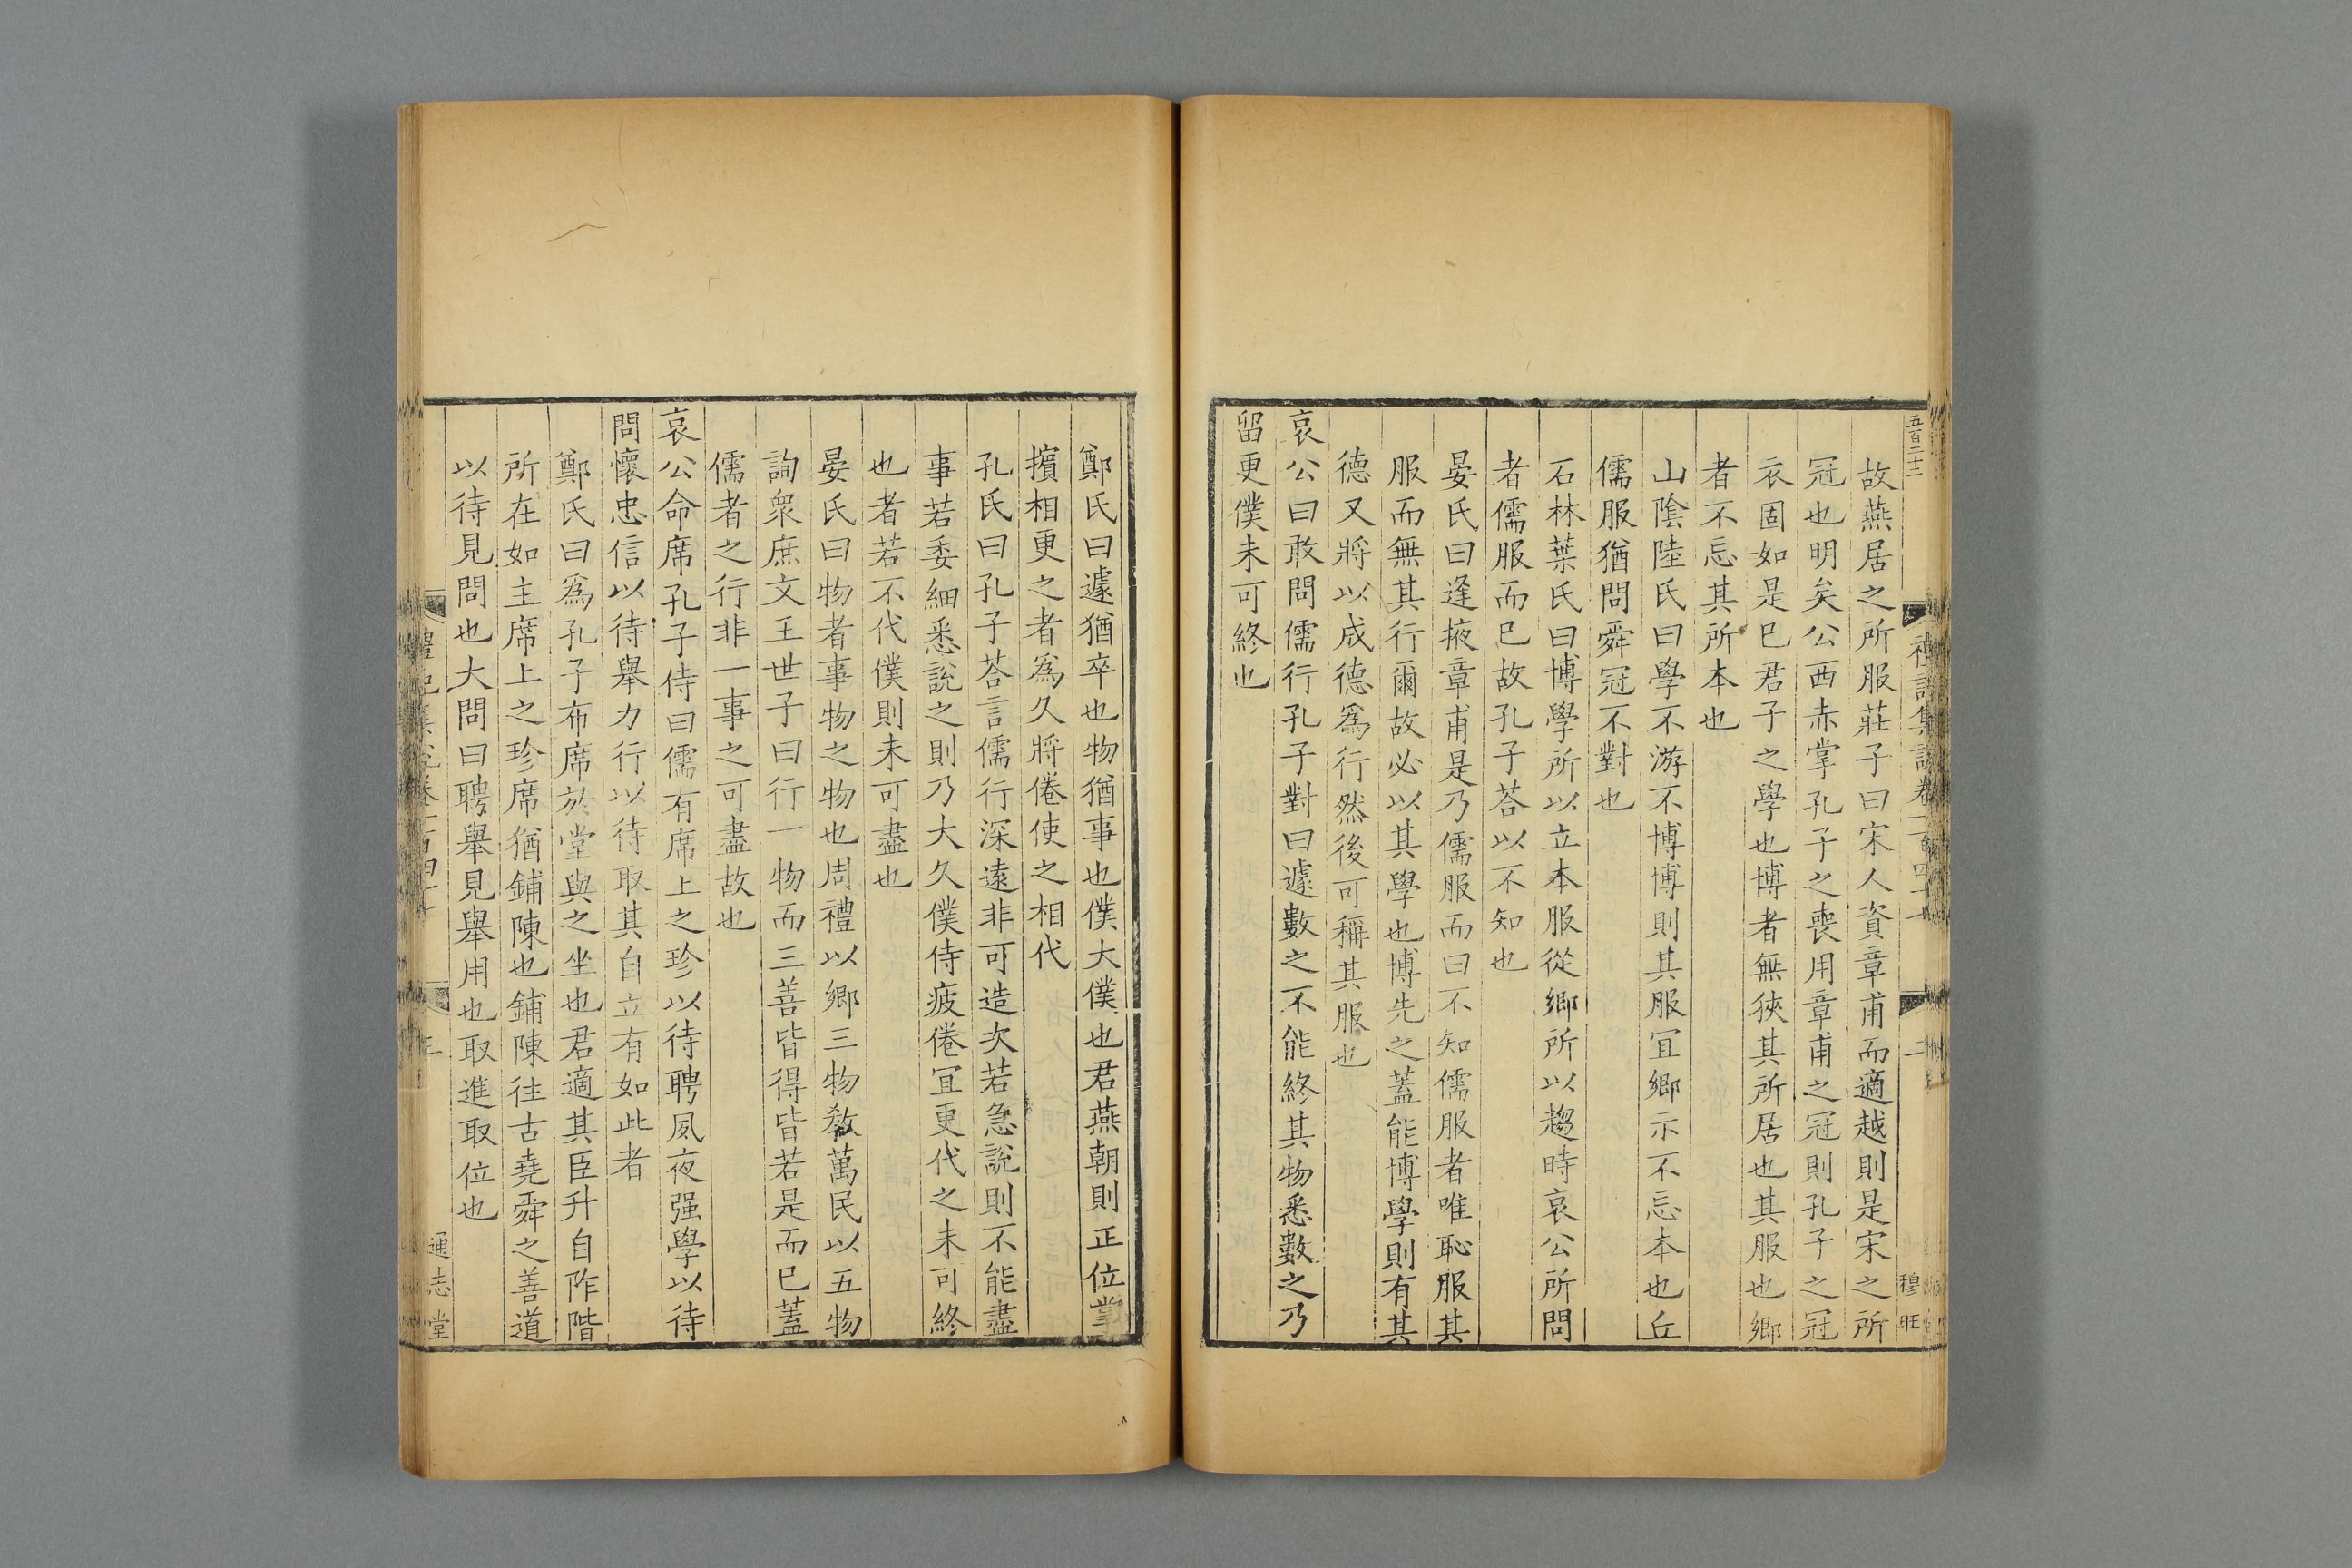 五百二十二
故燕居之所服莊子曰宋人資章甫而適越則是宋之所
冠也明矣公西赤掌孔子之喪用章甫之冠則孔子之冠
衣固如是巳君子之學也博者無狹其所居也其服也鄉
者不忘其所本也
山陰陸氏曰學不游不博博則其服冝鄉示不忘本也丘
儒服猶問舜冠不對也
石林葉氏曰博學所以立本服從鄉所以趨時哀公所問
者儒服而巳故孔子荅以不知也
晏氏曰逢掖章甫是乃儒服而曰不知儒服者唯恥服其
服而無其行爾故必以其學也博先之蓋能博學則有其
德又將以成德爲行然後可稱其服也
哀公曰敢問儒行孔子對曰遽數之不能終其物悉數之乃
留更僕未可終也
鄭氏曰遽猶卒也物猶事也僕大僕也君燕朝則正位掌
擯相更之者爲久將倦使之相代
孔氏曰孔子荅言儒行深遠非可造次若急說則不能盡
事若委細悉說之則乃大久僕侍疲倦冝更代之未可終
也者若不代僕則未可盡也
晏氏曰物者事物之物也周禮以鄉三物敎萬民以五物
詢衆庶文王世子曰行一物而三善皆得皆若是而巳蓋
儒者之行非一事之可盡故也
哀公命席孔子侍曰儒有席上之珍以待聘夙夜强學以待
問懷忠信以待舉力行以待取其自立有如此者
鄭氏曰爲孔子布席於堂與之坐也君適其臣升自阼階
所在如主席上之珍席猶鋪陳也鋪陳往古堯舜之善道
以待見問也大問曰聘舉見舉用也取進取位也
通志堂